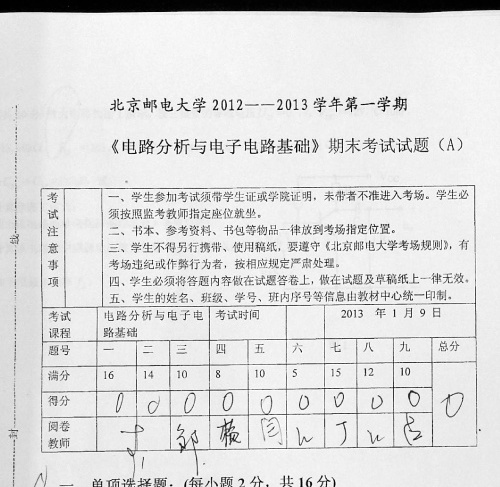 北京邮电大学 2012——2013 学年第一学期
《电路分析与电子电路基础》期末考试试题（A）
考试注意事项
一、学生参加考试须带学生证或学院证明，未带者不准进入考场。学生必
须按照监考教师指定座位就坐。
二、书本、参考资料、书包等物品一律放到考场指定位置。
三、学生不得另行携带、使用稿纸，要遵守《北京邮电大学考场规则》，有
考场违纪或作弊行为者，按相应规定严肃处理。
四、学生必须将答题内容做在试题答卷上，做在试题及草稿纸上一律无效。
五、学生的姓名、班级、学号、班内序号等信息由教材中心统一印制。
考试课程 电路分析与电子电路基础 考试时间 2013 年 1 月 9 日
题号 一 二 三 四 五 六 七 八 九 总分
满分 16 14 10 8 10 5 15 12 10
得分 0 0 0 0 0 0 0 0 0 0
阅卷教师 邹 闫 丁
一、单项选择题：(每小题 2 分，共 16 分)
封